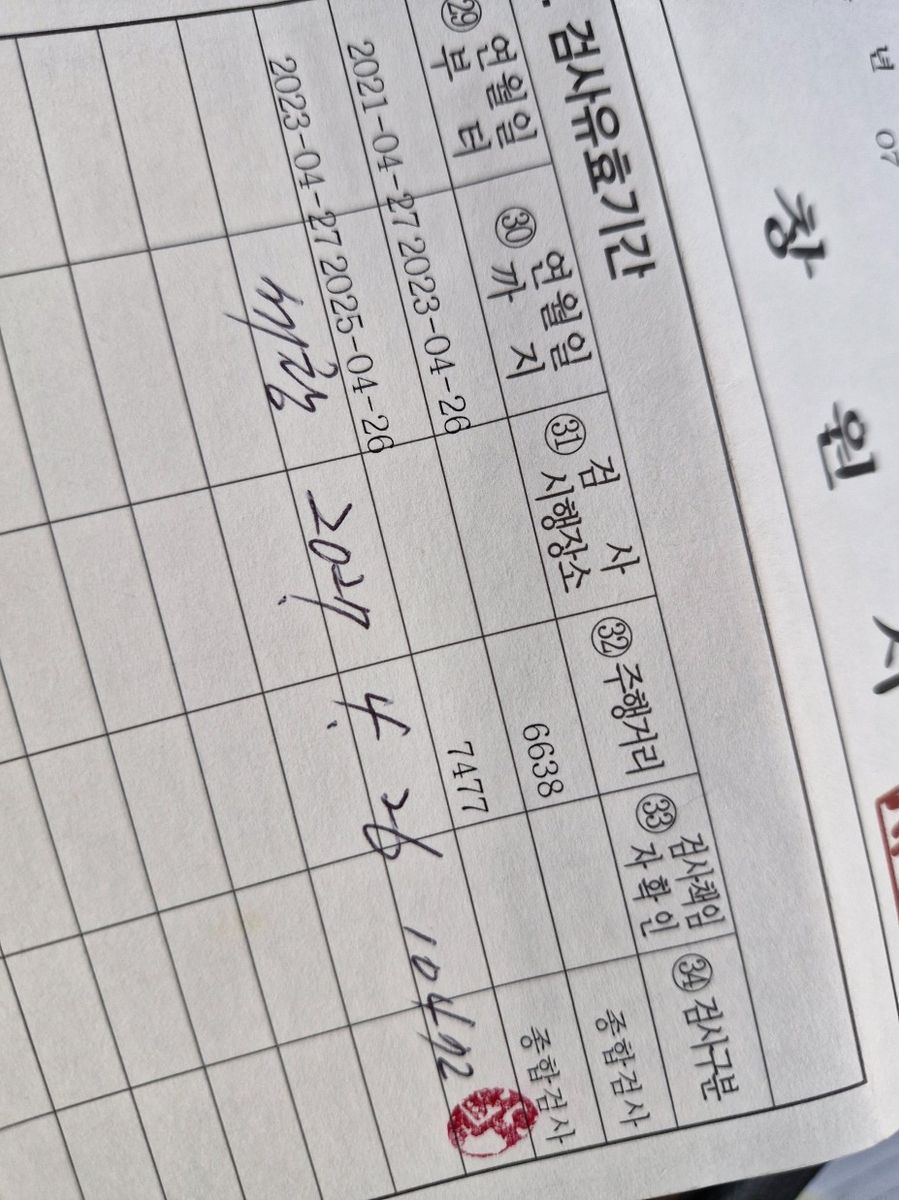 년 07
창 원 시
. 검사유효기간
㉙ 연월일 부 터 ㉚ 연월일 까 지 ㉛ 검 사 시행장소 ㉜ 주행거리 ㉝ 검사책임 자 확 인 ㉞ 검사구분
2021-04-27 2023-04-26 6638 종합검사
2023-04-27 2025-04-26 7477 종합검사
2027. 4. 26 10472